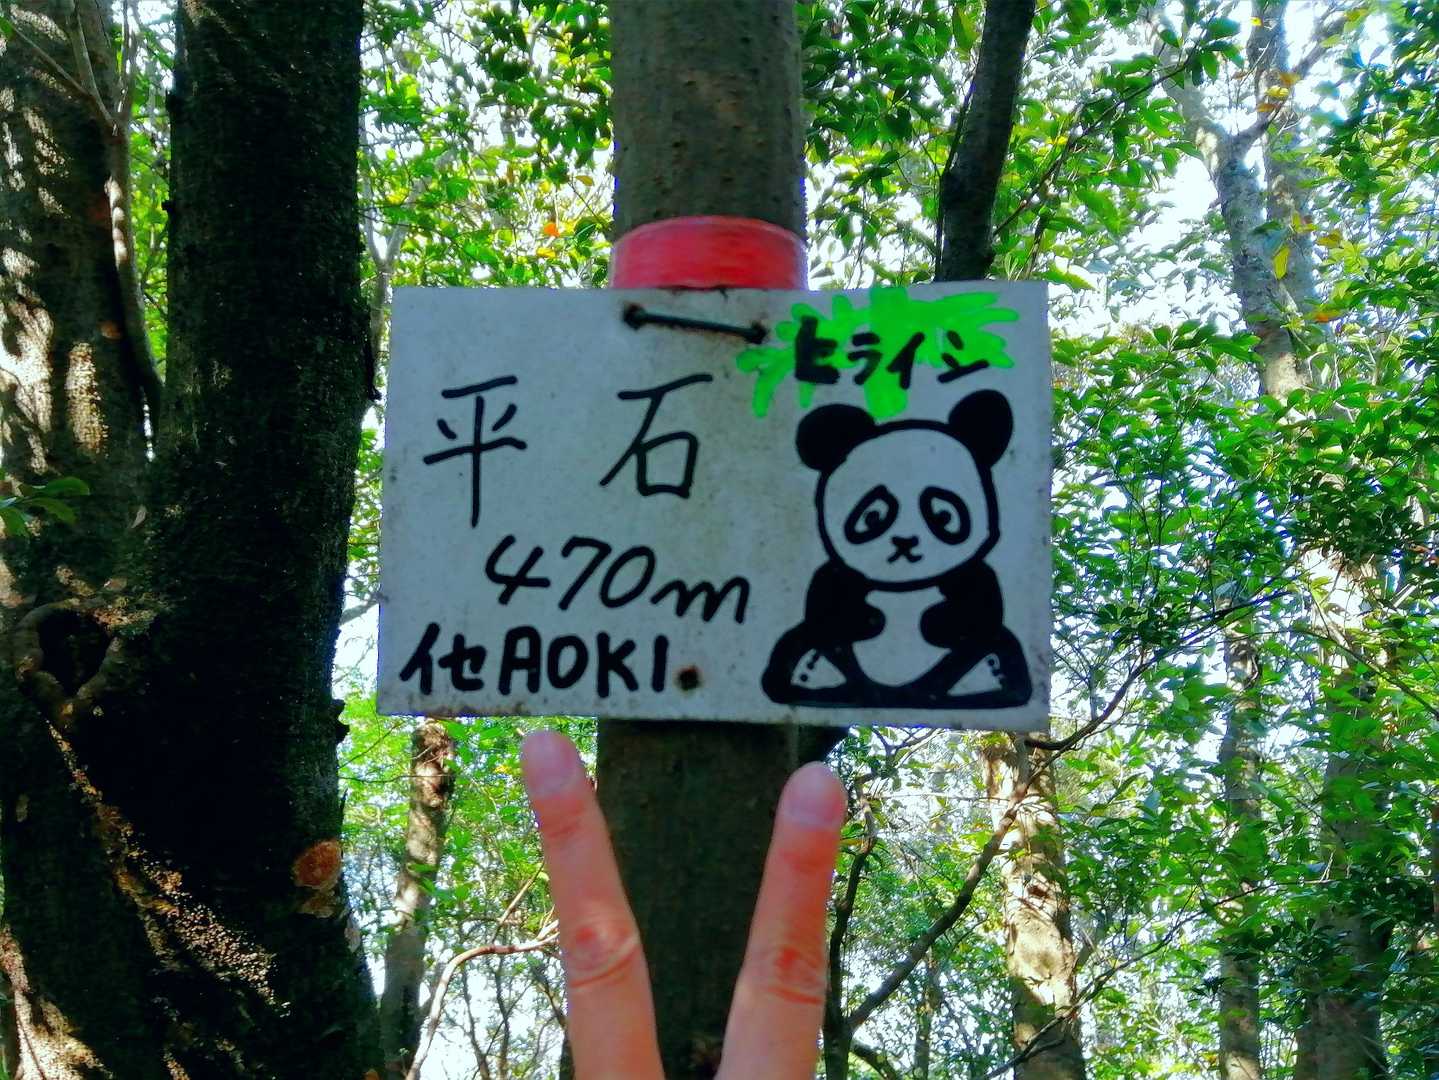 ヒライシ
平石
470m
他AOKI